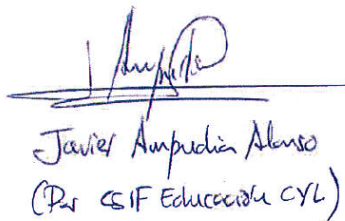 Javier Ampudia Alonso
(Por CSIF Educación CYL)